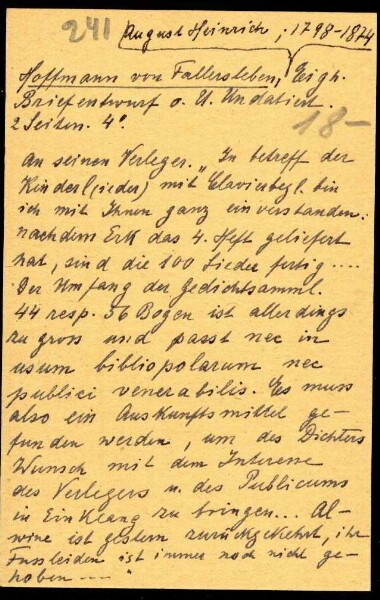 241 August Heinrich, 1798-1874
Hoffmann von Fallersleben, Eigh.
Briefentwurf o. U. Undatiert.
2 Seiten. 4°. 18-
An seinen Verleger. „In betreff der
Kinderl(ieder) mit Clavierbegl. bin
ich mit Ihnen ganz einverstanden:
nachdem Erk das 4. Heft geliefert
hat, sind die 100 Lieder fertig ....
Der Umfang der Gedichtsamml.
44 resp. 56 Bogen ist allerdings
zu gross und passt nec in
usum bibliopolarum nec
publici venerabilis. Es muss
also ein Auskunftsmittel ge-
funden werden, um des Dichters
Wunsch mit dem Interesse
des Verlegers u. des Publicums
in Einklang zu bringen... Al-
wine ist gestern zurückgekehrt, ihr
Fussleiden ist immer noch nicht ge-
hoben ...."